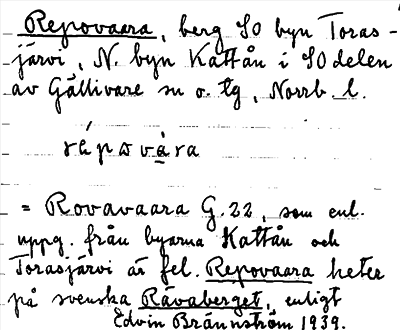 Repovaara, berg SO byn Toras-
järvi, N. byn Kattån i SO delen
av Gällivare sn o. tg, Norrb. l.
répovàra
= Rovavaara G.22, som enl.
uppg. från byarna Kattån och
Torasjärvi är fel. Repovaara heter
på svenska Rävaberget, enligt
Edvin Brännström 1939.